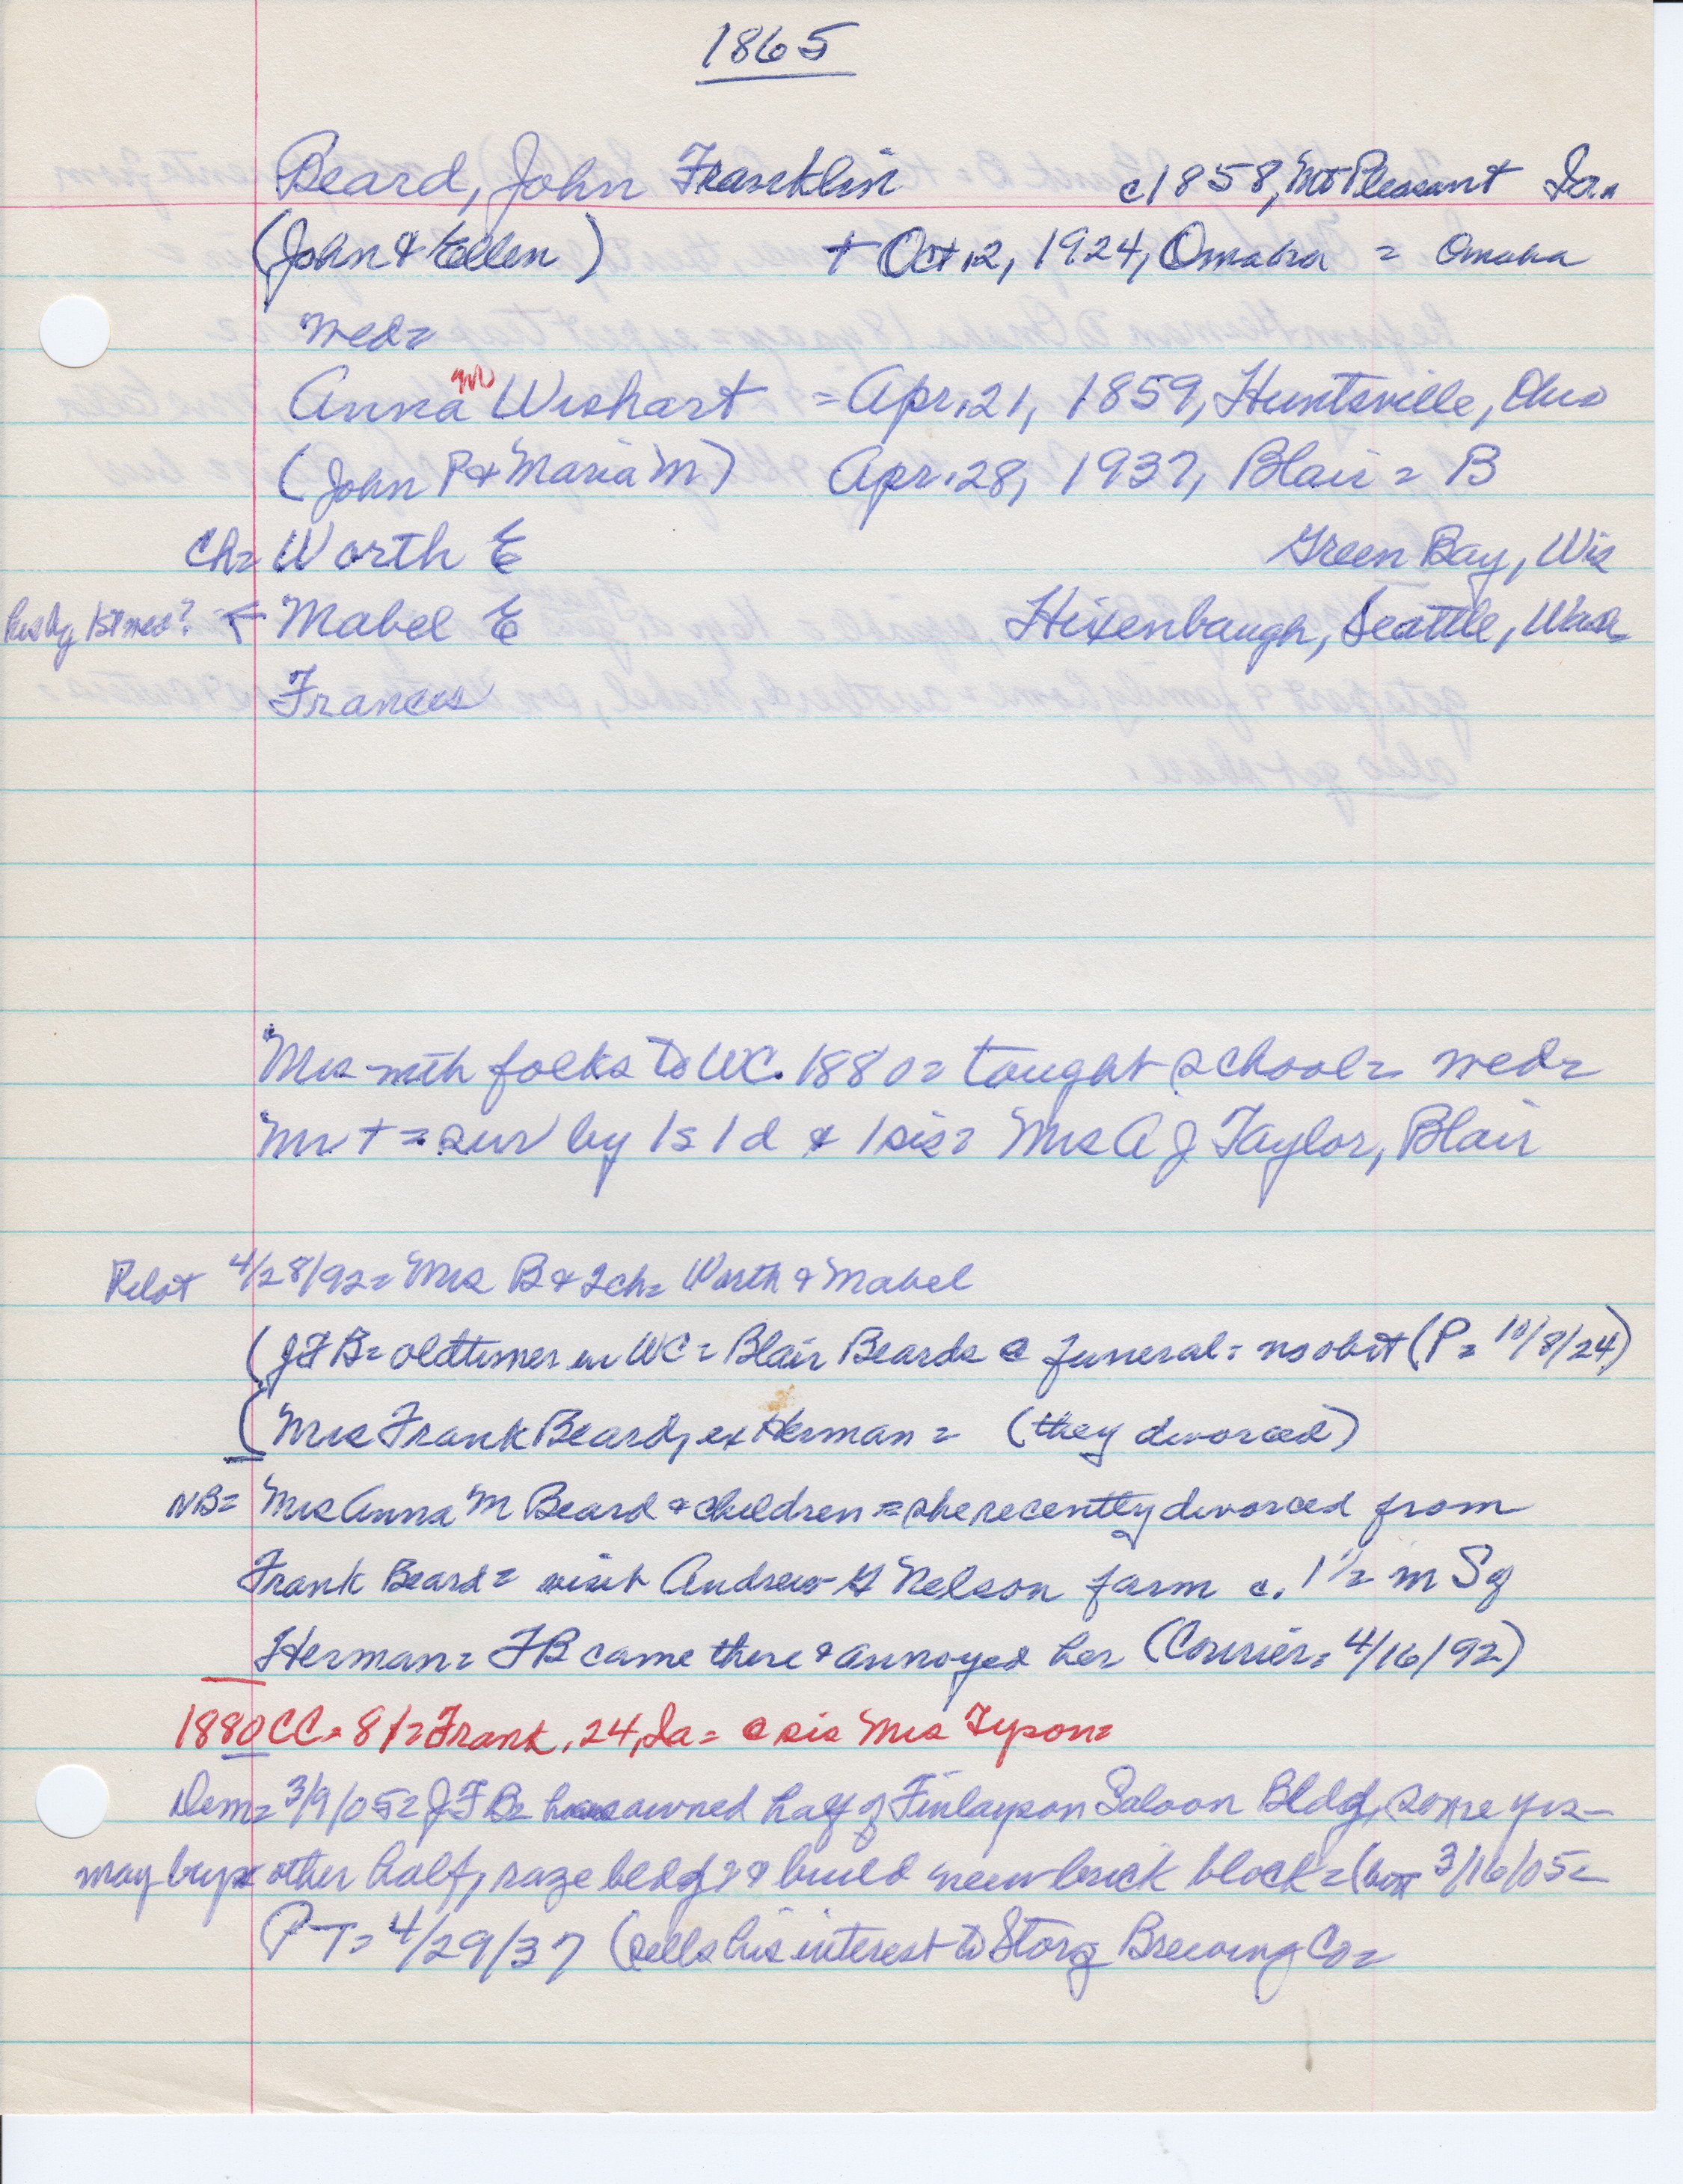 1865
Beard, John Franklin c1858, Mt Pleasant Ia.
(John & Ellen) + Oct 12, 1924, Omaha = Omaha
wed=
Anna M Wishart = Apr. 21, 1859, Huntsville, Ohio
(John P & Maria M) Apr. 28, 1937, Blair = B
Ch= Worth E Green Bay, Wis
1st wed? ← Mabel E Hixenbaugh, Seattle, Wash
Frances
Mrs with folks to WC. 1880= taught school= wed=
Mr + = sur by 1s 1d & 1sis= Mrs A J Taylor, Blair
Pilot 4/28/92= Mrs B & 2ch= Worth & Mabel
(JFB= oldtimer in WC= Blair Beards @ funeral= no obit (P= 10/8/24)
(Mrs Frank Beard, ex Herman = (they divorced)
NB= Mrs Anna M Beard & children = she recently divorced from
Frank Beard= visit Andrew G Nelson farm c. 1 1/2 m S of
Herman= FB came there & annoyed her (Courier= 4/16/92)
1880 CC= 81= Frank, 24, Ia= @ sis Mrs Tyson=
Dem= 3/9/05= JFB= has owned half of Finlayson Saloon Bldg, some yrs-
may buy other half, raze bldg & build new brick block= ( 3/16/05=
PT= 4/29/37 (sells his interest to Storz Brewing Co=